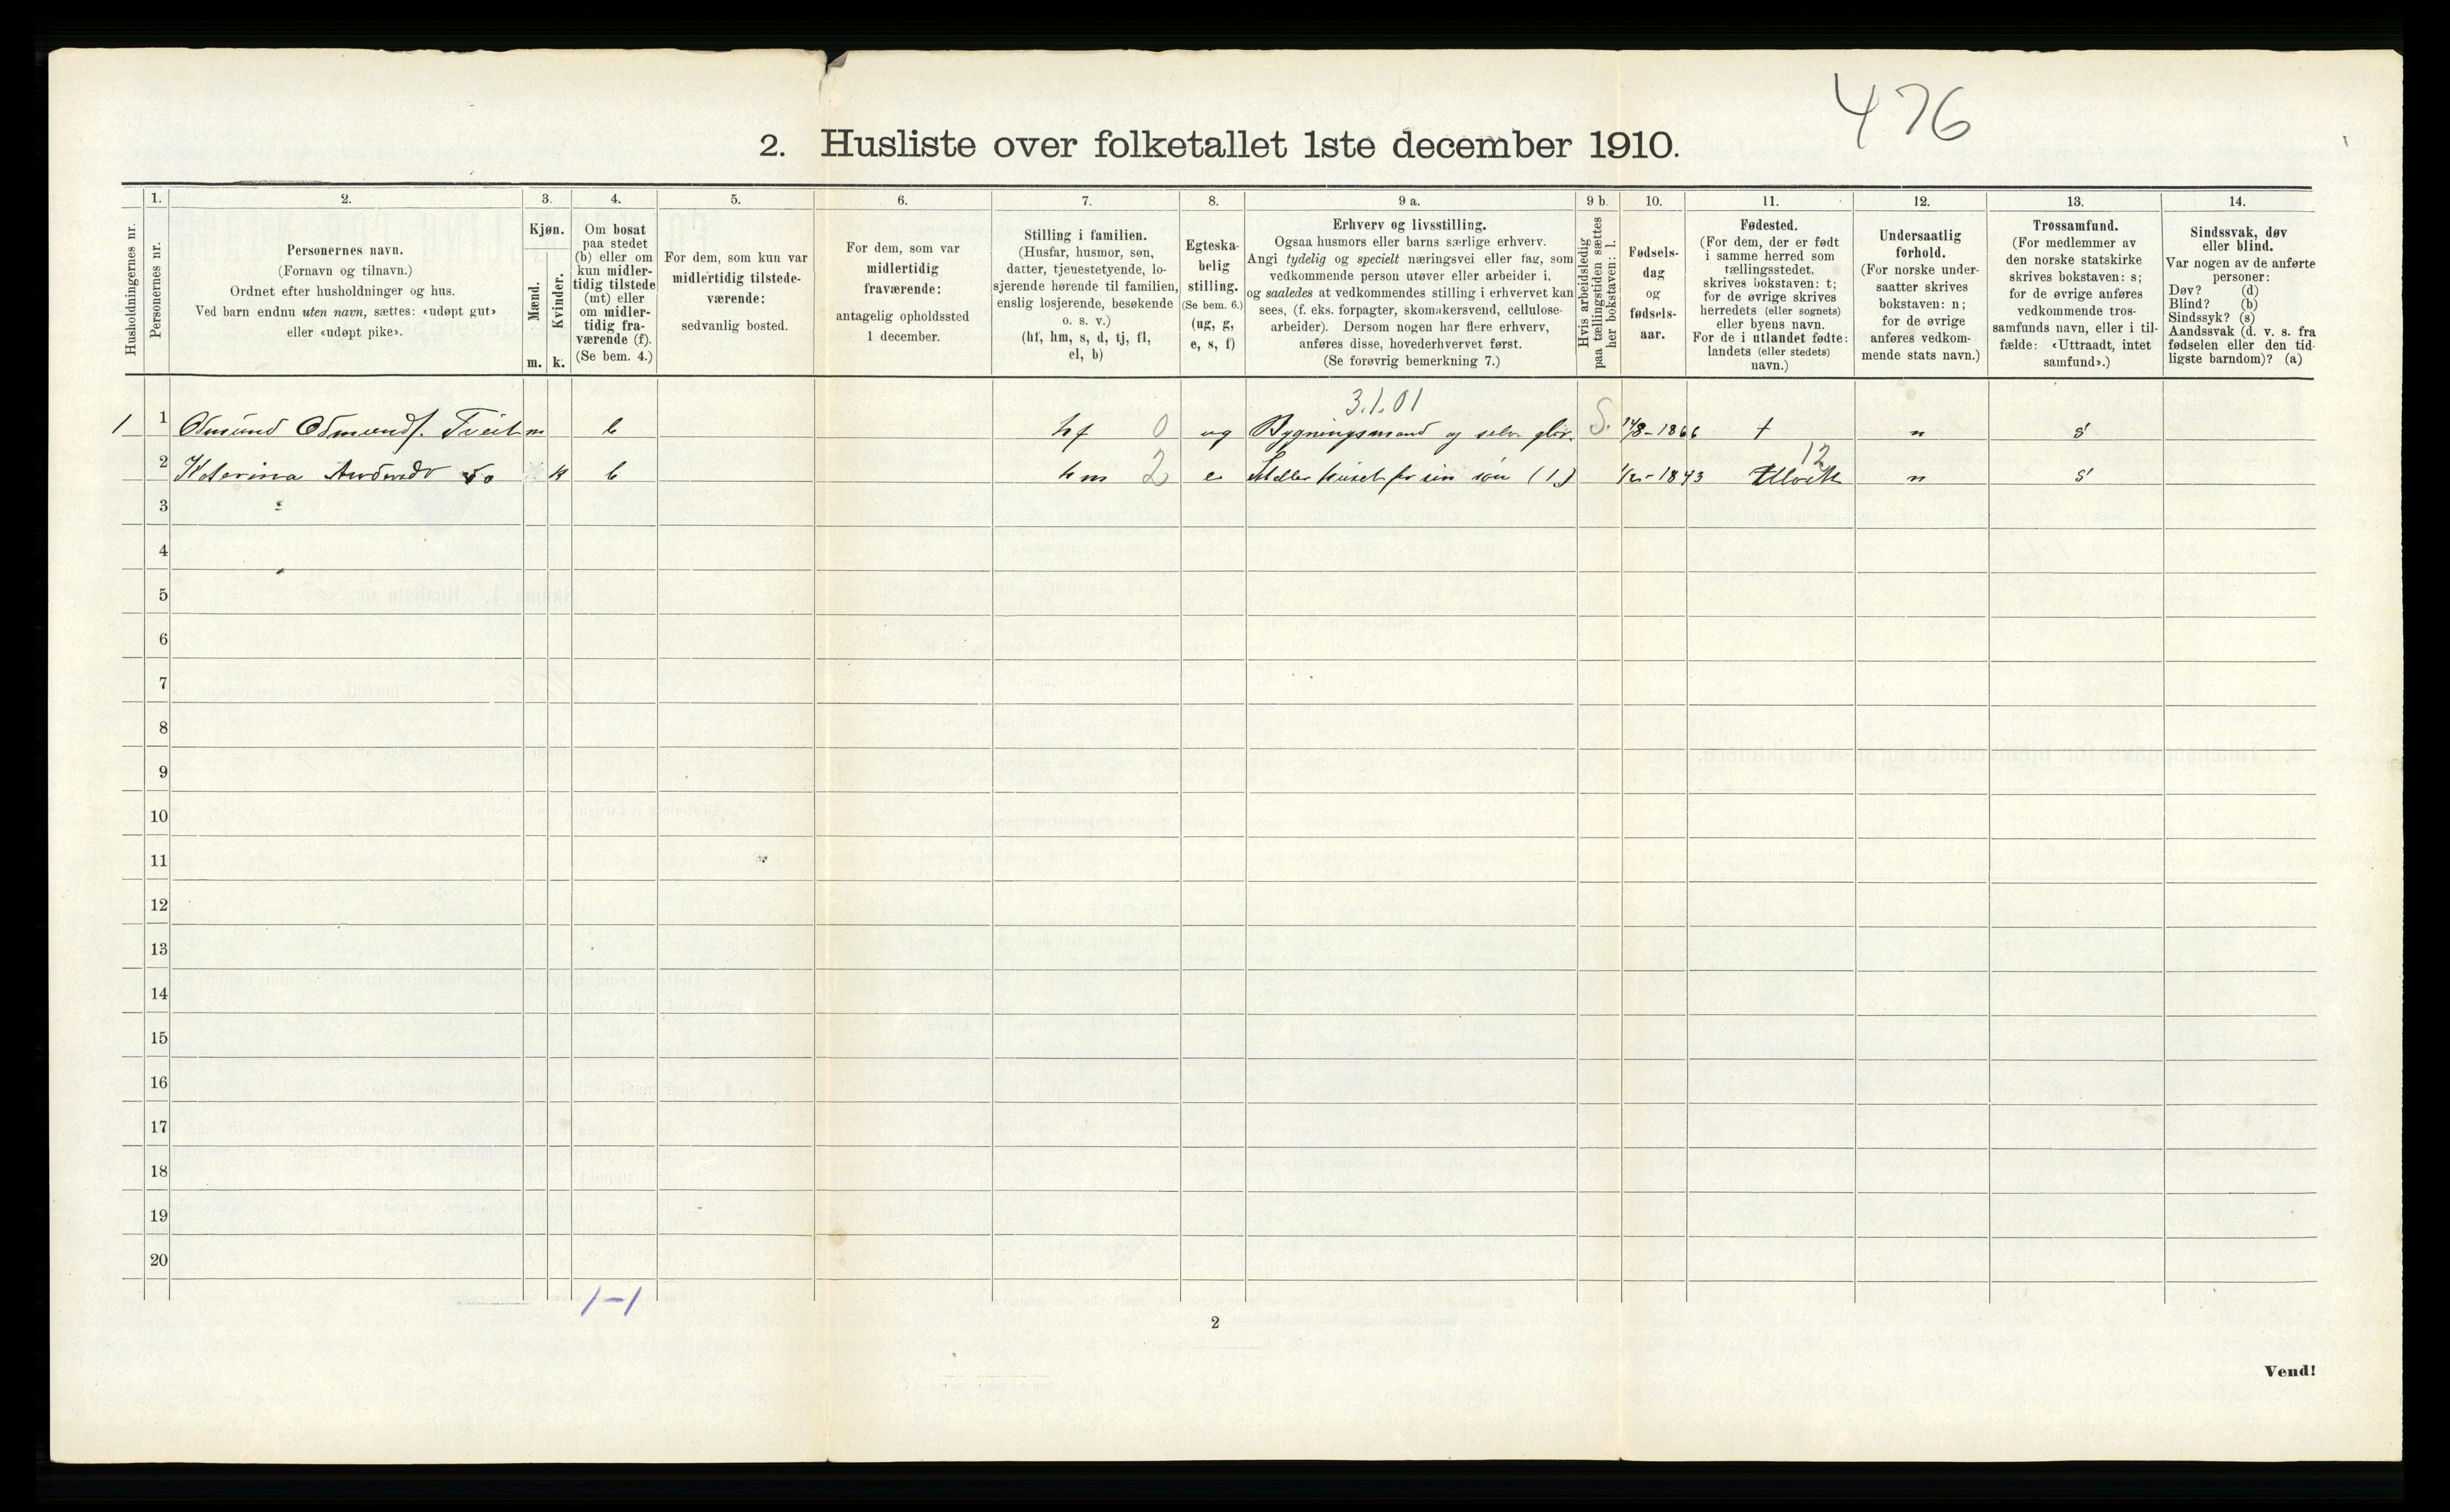 476
2. Husliste over folketallet 1ste december 1910.
Husholdningernes nr.
1.
Personernes nr.
2.
Personernes navn.
(Fornavn og tilnavn.)
Ordnet efter husholdninger og hus.
Ved barn endnu uten navn, sættes: «udøpt gut»
eller «udøpt pike».
3.
Kjøn.
Mænd.
Kvinder.
m. k.
4.
Om bosat
paa stedet
(b) eller om
kun midler-
tidig tilstede
(mt) eller
om midler-
tidig fra-
værende (f).
(Se bem. 4.)
5.
For dem, som kun var
midlertidig tilstede-
værende:
sedvanlig bosted.
6.
For dem, som var
midlertidig
fraværende:
antagelig opholdssted
1 december.
7.
Stilling i familien.
(Husfar, husmor, søn,
datter, tjenestetyende, lo-
sjerende hørende til familien,
enslig losjerende, besøkende
o. s. v.)
(hf, hm, s, d, tj, fl,
el, b)
8.
Egteska-
belig
stilling.
(Se bem. 6.)
(ug, g,
e, s, f)
9 a.
Erhverv og livsstilling.
Ogsaa husmors eller barns særlige erhverv.
Angi tydelig og specielt næringsvei eller fag, som
vedkommende person utøver eller arbeider i,
og saaledes at vedkommendes stilling i erhvervet kan
sees, (f. eks. forpagter, skomakersvend, cellulose-
arbeider). Dersom nogen har flere erhverv,
anføres disse, hovederhvervet først.
(Se forøvrig bemerkning 7.)
9 b.
Hvis arbeidsledig
paa tællingstiden sættes
her bokstaven: l.
10.
Fødsels-
dag
og
fødsels-
aar.
11.
Fødested.
(For dem, der er født
i samme herred som
tællingsstedet,
skrives bokstaven: t;
for de øvrige skrives
herredets (eller sognets)
eller byens navn.
For de i utlandet fødte:
landets (eller stedets)
navn.)
12.
Undersaatlig
forhold.
(For norske under-
saatter skrives
bokstaven: n;
for de øvrige
anføres vedkom-
mende stats navn.)
13.
Trossamfund.
(For medlemmer av
den norske statskirke
skrives bokstaven: s;
for de øvrige anføres
vedkommende tros-
samfunds navn, eller i til-
fælde: «Uttraadt, intet
samfund».)
14.
Sindssvak, døv
eller blind.
Var nogen av de anførte
personer:
Døv? (d)
Blind? (b)
Sindssyk? (s)
Aandssvak (d. v. s. fra
fødselen eller den tid-
ligste barndom)? (a)
3.1.01
1 1 Osmund Osmunds. Tveit m b hf 0 ug Bygningsmand og selv. S. 14/8-1866 t n s
12
2 Katerina do k b hm 2 e Steller huset for sin søn (1) 1843 Ulvik n s
3
4
5
6
7
8
9
10
11
12
13
14
15
16
17
18
19
20
1-1
2
Vend!